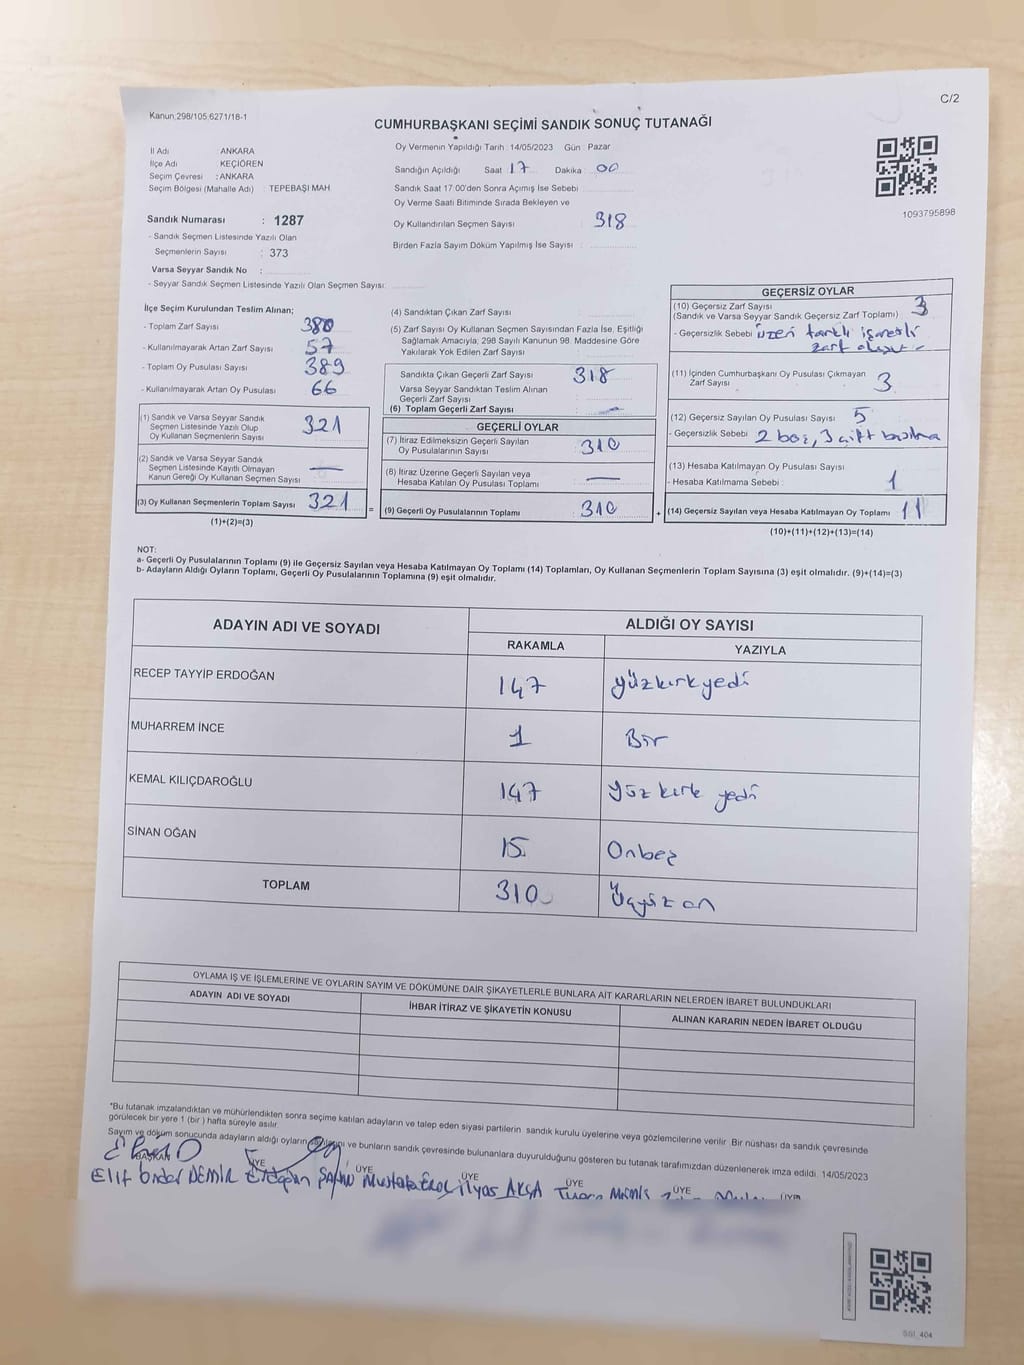 C/2
Kanun;298/105;6271/18-1
CUMHURBAŞKANI SEÇİMİ SANDIK SONUÇ TUTANAĞI
İl Adı : ANKARA
İlçe Adı : KEÇİÖREN
Seçim Çevresi : ANKARA
Seçim Bölgesi (Mahalle Adı) : TEPEBAŞI MAH
Sandık Numarası : 1287
- Sandık Seçmen Listesinde Yazılı Olan
Seçmenlerin Sayısı : 373
Varsa Seyyar Sandık No :
- Seyyar Sandık Seçmen Listesinde Yazılı Olan Seçmen Sayısı:
Oy Vermenin Yapıldığı Tarih : 14/05/2023 Gün : Pazar
Sandığın Açıldığı Saat 17 Dakika 00
Sandık Saat 17:00'den Sonra Açılmış İse Sebebi
Oy Verme Saati Bitiminde Sırada Bekleyen ve
Oy Kullandırılan Seçmen Sayısı : 318
Birden Fazla Sayım Döküm Yapılmış İse Sayısı :
1093795898
İlçe Seçim Kurulundan Teslim Alınan;
- Toplam Zarf Sayısı 380
- Kullanılmayarak Artan Zarf Sayısı 57
- Toplam Oy Pusulası Sayısı 389
- Kullanılmayarak Artan Oy Pusulası 66
(1) Sandık ve Varsa Seyyar Sandık
Seçmen Listesinde Yazılı Olup
Oy Kullanan Seçmenlerin Sayısı 321
(2) Sandık ve Varsa Seyyar Sandık
Seçmen Listesinde Kayıtlı Olmayan
Kanun Gereği Oy Kullanan Seçmen Sayısı —
(3) Oy Kullanan Seçmenlerin Toplam Sayısı 321 =
(1)+(2)=(3)
(4) Sandıktan Çıkan Zarf Sayısı :
(5) Zarf Sayısı Oy Kullanan Seçmen Sayısından Fazla İse, Eşitliği
Sağlamak Amacıyla; 298 Sayılı Kanunun 98. Maddesine Göre
Yakılarak Yok Edilen Zarf Sayısı
Sandıkta Çıkan Geçerli Zarf Sayısı 318
Varsa Seyyar Sandıktan Teslim Alınan
Geçerli Zarf Sayısı
(6) Toplam Geçerli Zarf Sayısı —
GEÇERLİ OYLAR
(7) İtiraz Edilmeksizin Geçerli Sayılan
Oy Pusulalarının Sayısı : 310
(8) İtiraz Üzerine Geçerli Sayılan veya
Hesaba Katılan Oy Pusulası Toplamı : —
(9) Geçerli Oy Pusulalarının Toplamı : 310 +
GEÇERSİZ OYLAR
(10) Geçersiz Zarf Sayısı 3
(Sandık ve Varsa Seyyar Sandık Geçersiz Zarf Toplamı)
- Geçersizlik Sebebi : üzeri farklı işaretli
zarf
(11) İçinden Cumhurbaşkanı Oy Pusulası Çıkmayan
Zarf Sayısı : 3
(12) Geçersiz Sayılan Oy Pusulası Sayısı : 5
- Geçersizlik Sebebi 2 boş, 3 çift basılma
(13) Hesaba Katılmayan Oy Pusulası Sayısı
- Hesaba Katılmama Sebebi : 1
(14) Geçersiz Sayılan veya Hesaba Katılmayan Oy Toplamı 11
(10)+(11)+(12)+(13)=(14)
NOT:
a- Geçerli Oy Pusulalarının Toplamı (9) ile Geçersiz Sayılan veya Hesaba Katılmayan Oy Toplamı (14) Toplamları, Oy Kullanan Seçmenlerin Toplam Sayısına (3) eşit olmalıdır. (9)+(14)=(3)
b- Adayların Aldığı Oyların Toplamı, Geçerli Oy Pusulalarının Toplamına (9) eşit olmalıdır.
ADAYIN ADI VE SOYADI ALDIĞI OY SAYISI
RAKAMLA YAZIYLA
RECEP TAYYİP ERDOĞAN 147 yüzkırkyedi
MUHARREM İNCE 1 Bir
KEMAL KILIÇDAROĞLU 147 yüz kırk yedi
SİNAN OĞAN 15 Onbeş
TOPLAM 310 Üçyüz on
OYLAMA İŞ VE İŞLEMLERİNE VE OYLARIN SAYIM VE DÖKÜMÜNE DAİR ŞİKAYETLERLE BUNLARA AİT KARARLARIN NELERDEN İBARET BULUNDUKLARI
ADAYIN ADI VE SOYADI İHBAR İTİRAZ VE ŞİKAYETİN KONUSU ALINAN KARARIN NEDEN İBARET OLDUĞU
*Bu tutanak imzalandıktan ve mühürlendikten sonra seçime katılan adayların ve talep eden siyasi partilerin sandık kurulu üyelerine veya gözlemcilerine verilir. Bir nüshası da sandık çevresinde
görülecek bir yere 1 (bir) hafta süreyle asılır.
Sayım ve döküm sonucunda adayların aldığı oyların ve bunların sandık çevresinde bulunanlara duyurulduğunu gösteren bu tutanak tarafımızdan düzenlenerek imza edildi. 14/05/2023
BAŞKAN ÜYE ÜYE ÜYE ÜYE ÜYE ÜYE
Elif Önder DEMİR Erdoğan Mustafa İlyas AKÇA
SSİ_404